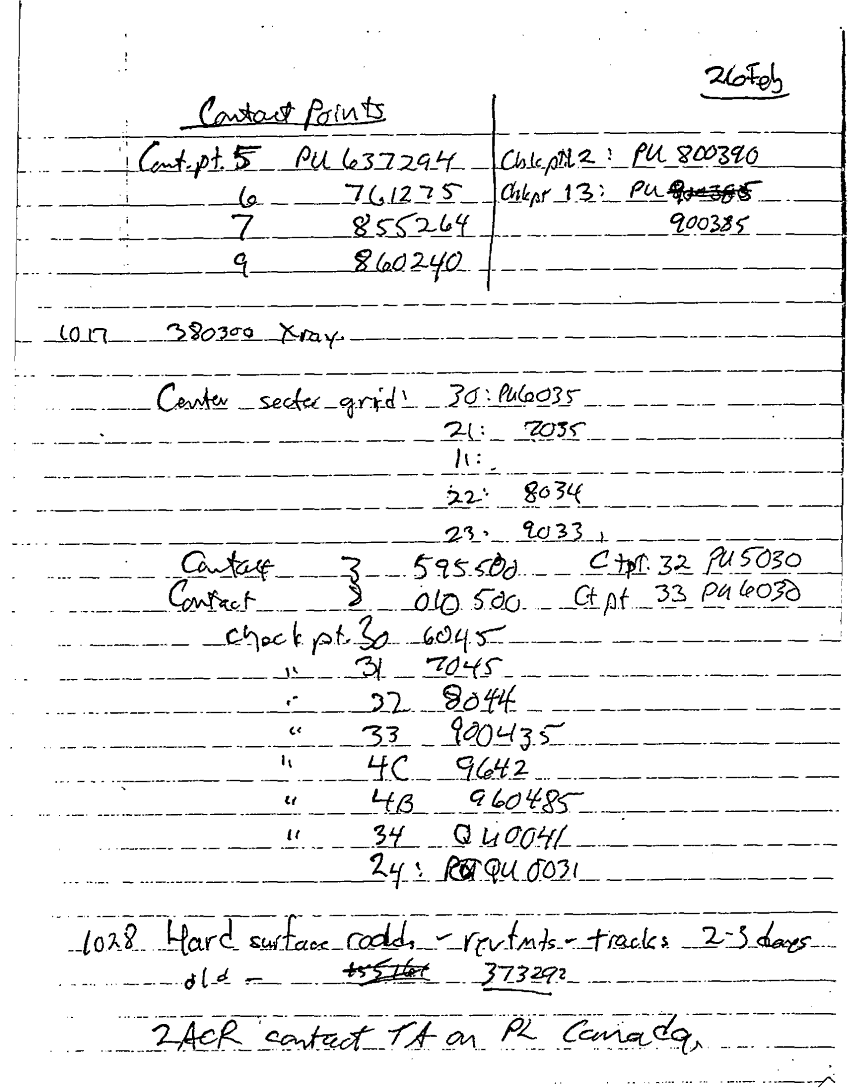 26 Feb
Contact Points
Cont. pt. 5 PU 637294
6 761275
7 855264
9 860240
Chkpt 12: PU 800390
Chkpt 13: PU
900385
1017 380300 Xray.
Center sector grid: 30: PU6035
21: 7035
11:
22: 8034
23: 9033
Contact 3 595500 Ct pt. 32 PU 5030
Contact 8 010500 Ct pt 33 PU 6030
Check pt. 30 6045
" 31 7045
" 32 8044
" 33 900435
" 4C 9642
" 4B 960485
" 34 QU 0041
24: QU 0031
1028 Hard surface roads - revtmts - tracks 2-3 days
old - 373292
2ACR contact TA on PL Canada,